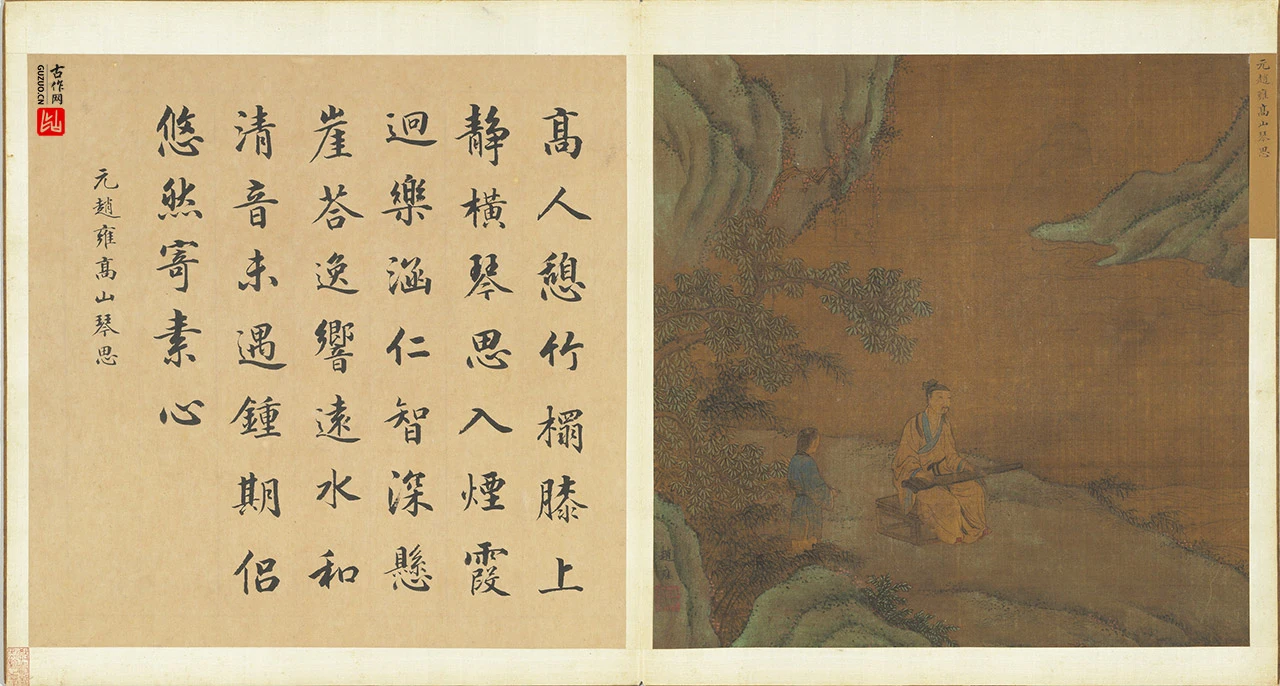 元趙雍髙山琴思
髙人憩竹榻膝上
静橫琴思入煙霞
迥樂涵仁智深懸
崖荅逸響遠水和
清音未遇鍾期侣
悠然寄素心
元趙雍髙山琴思
古作网
GUZUO.CN